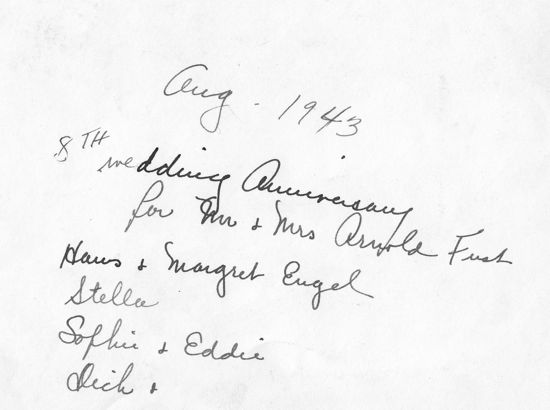 Aug. 1943
8TH wedding Anniversary
for Mr & Mrs Arnold Fust
Hans & Margret Engel
Stella
Sophie & Eddie
Dick &